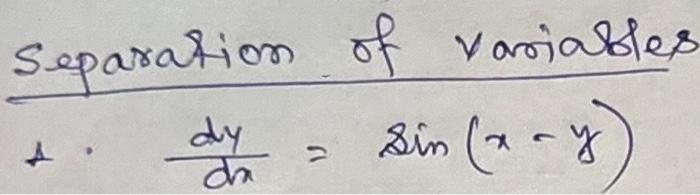 Separation of variables
1. dy/dx = sin (x - y)